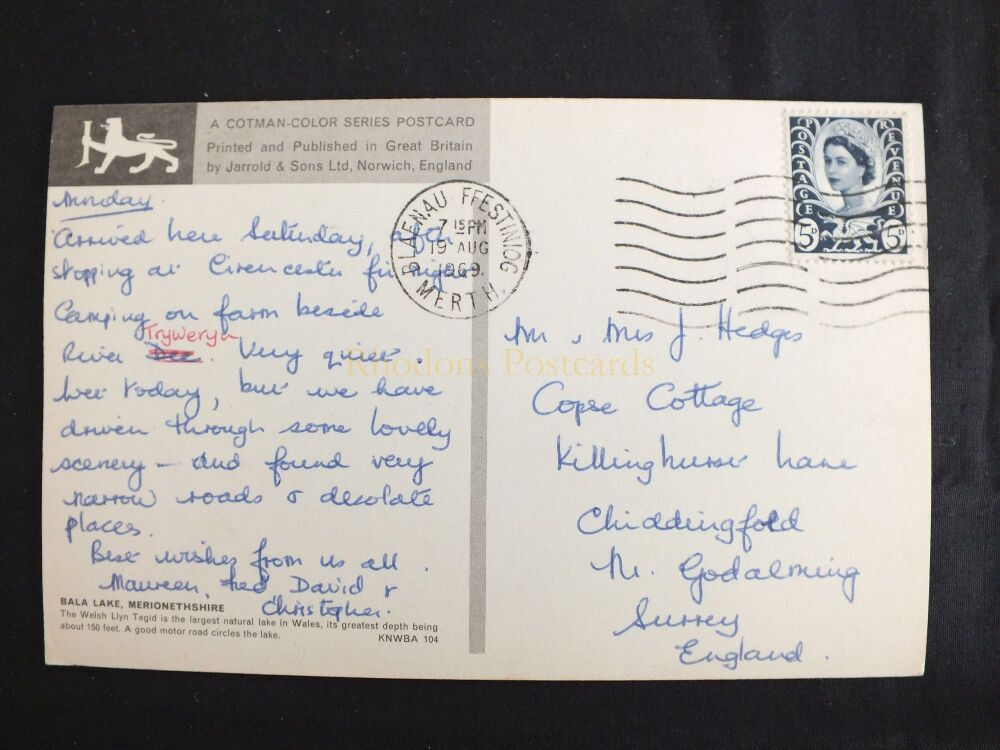 A COTMAN-COLOR SERIES POSTCARD
Printed and Published in Great Britain
by Jarrold & Sons Ltd, Norwich, England
Arrived here Saturday, after
stopping at Cirencester for night
Camping on farm beside
Tryweryn
River Dee. Very quiet.
Wet today, but we have
driven through some lovely
scenery - and found very
narrow roads & desolate
places.
Best wishes from us all.
Maureen, Ted David &
Christopher.
BALA LAKE, MERIONETHSHIRE
The Welsh Llyn Tegid is the largest natural lake in Wales, its greatest depth being
about 150 feet. A good motor road circles the lake.
KNWBA 104
BLAENAU FFESTINIOG
7 15 PM
19 AUG
1969
MERTH.
POSTAGE REVENUE
5D 5D
Mr & Mrs J. Hedges
Copse Cottage
Killinghurst Lane
Chiddingfold
Nr. Godalming
Surrey
England.
Rhodons Postcards